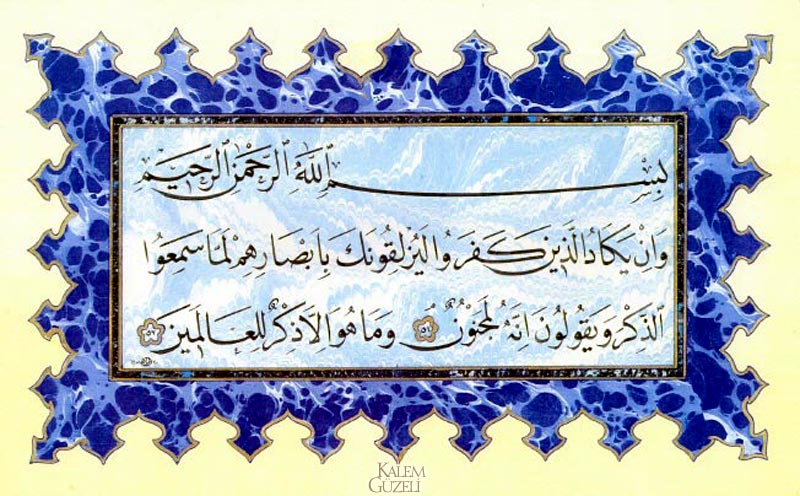 بِسْمِ اللّٰهِ الرَّحْمٰنِ الرَّحِيمِ
وَاِنْ يَكَادُ الَّذِينَ كَفَرُوا لَيُزْلِقُونَكَ بِاَبْصَارِهِمْ لَمَّا سَمِعُوا
الذِّكْرَ وَيَقُولُونَ اِنَّهُ لَمَجْنُونٌ ٥١ وَمَا هُوَ اِلَّا ذِكْرٌ لِلْعَالَمِينَ ٥٢
KALEM
GÜZELİ